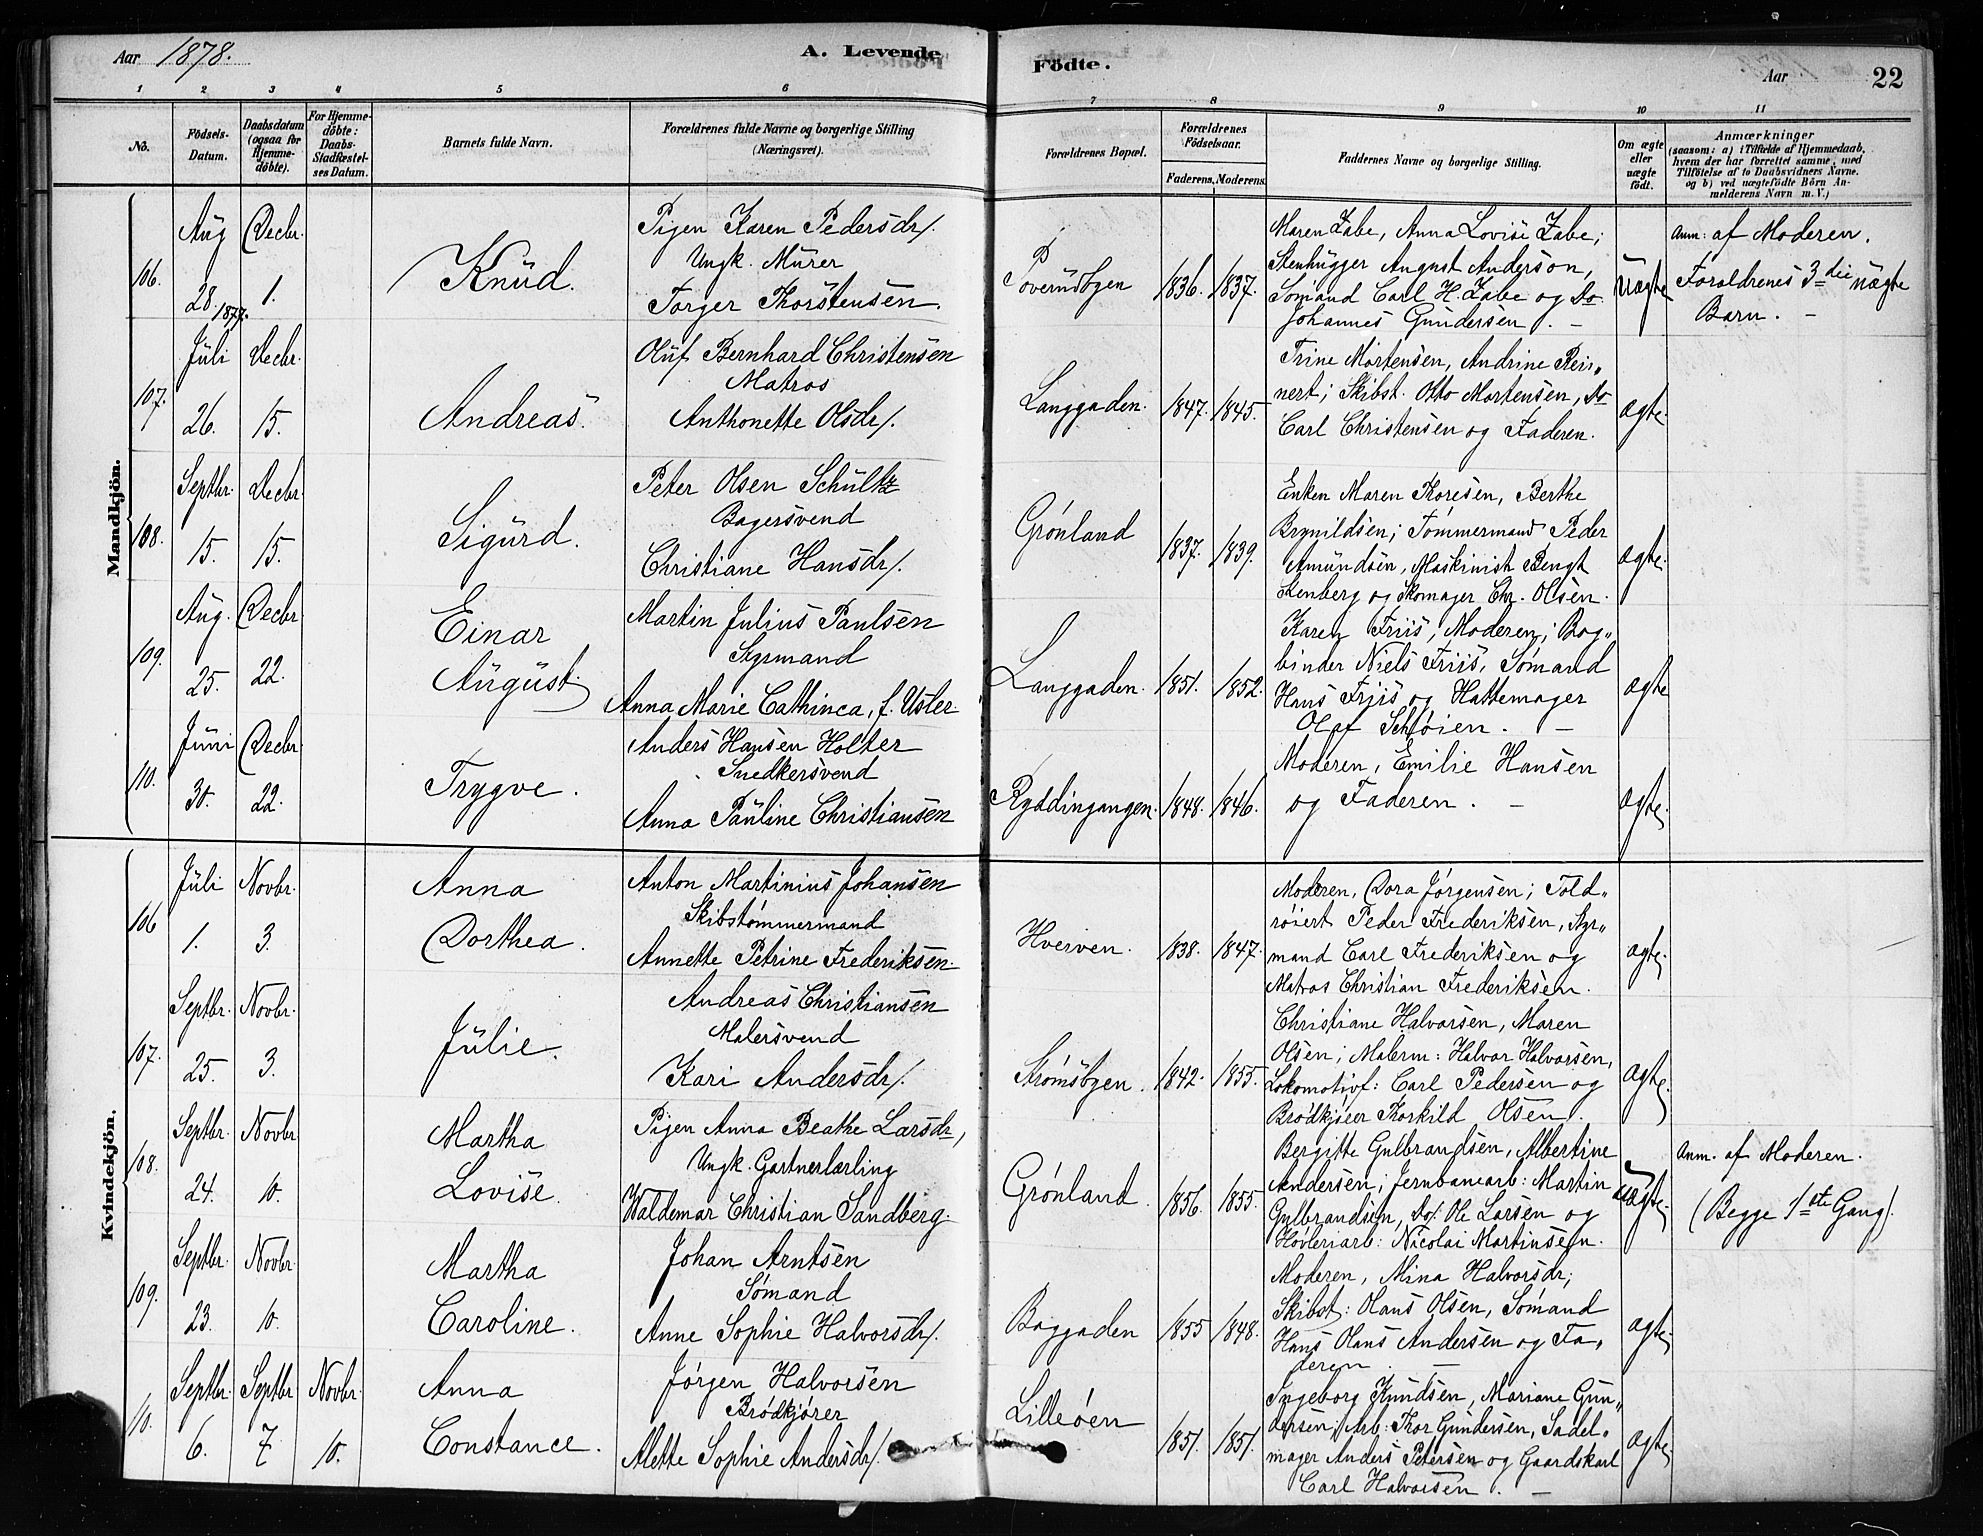 Aar 1878.
A. Levende
Födte.
Aar
22
1 2 3 4 5 6 7 8 9 10 11
No.
Födsels-Datum.
Daabsdatum (ogsaa for Hjemmedöbte).
For Hjemmedöbte: Daabs-Stadfæstelses Datum.
Barnets fulde Navn.
Forældrenes fulde Navne og borgerlige Stilling (Næringsvei).
Forældrenes Bopæl.
Forældrenes Födselsaar.
Faderens. Moderens.
Faddernes Navne og borgerlige Stilling.
Om ægte eller uægte födt.
Anmærkninger
(saasom: a) i Tilfælde af Hjemmedaab, hvem der har forrettet samme, med Tilföielse af to Daabsvidners Navne. og b) ved uægtefödte Börn Anmelderens Navn m. V.)
Mandkjön.
106. Aug 28. 1877. Decbr. 1.
Knud.
Pigen Karen Pedersdr/.
Ungk. Murer
Torger Thorstensen.
1836. 1837.
Maren Zabe, Anna Lovise Zabe;
Stenhugger August Anderson,
Sömand Carl H. Zabe og Do
Johannes Gundersen. –
Uægte
Anm: af Moderen.
Foraldrenes 3die uægte
Barn. –
107. Juli 26. Decbr. 15.
Andreas.
Oluf Bernhard Christensen
Matros
Anthonette Olsdr/.
Langgaden. 1847. 1845.
Trine Mortensen, Andrine Rei„
nert; Skibst. Otto Mortensen, Do
Carl Christensen og Faderen.
ægte.
108. Septbr. 15. Decbr. 15.
Sigurd.
Peter Olsen Schultz
Bagersvend
Christiane Hansdr/.
Grönland 1837. 1839.
Enken Maren Thoresen, Berthe
Brynildsen; Tömmermand Peder
Amundsen, Maskinist Bengt
Stenberg og Skomager Chr. Olsen.
ægte.
109. Aug. 25. Decbr 22.
Einar
August.
Martin Julius Paulsen
Styrmand
Anna Marie Cathinca, f. Uster.
Langgaden. 1851. 1852.
Karen Friis, Moderen; Bog„
binder Niels Friis, Sömand
Hans Friis og Hattemager
Olaf Schöien. –
ægte
110. Juni 30. Decbr 22.
Trygve.
Anders Hansen Holter
Snedkersvend
Anna Pauline Christiansen
Ryddingangen. 1848. 1846.
Moderen, Emilie Hansen
og Faderen. –
ægte.
Kvindekjön.
106 Juli 1. Novbr. 3.
Anna
Dorthea.
Anton Martinius Johansen
Skibstömmermand
Annette Petrine Frederiksen.
Hverven. 1838. 1847.
Moderen, Dora Jörgensen; Told„
röiert Peder Frederiksen, Styr„
mand Carl Frederiksen og
Matros Christian Frederiksen.
ægte.
107. Septbr. 25. Novbr. 3.
Julie.
Andreas Christiansen
Malersvend
Kari Andersdr/.
Strömsbyen. 1842. 1855.
Christiane Halvorsen, Maren
Olsen; Malerm: Halvor Halvorsen,
Lokomotivf: Carl Pedersen og
Brödkjörer Thorkild Olsen.
ægte.
108. Septbr. 24. Novbr 10.
Martha
Lovise.
Pigen Anna Beathe Larsdr,
Ungk. Gartnerlærling
Waldemar Christian Sandberg.
Grönland. 1856. 1855.
Bergitte Gulbrandsen, Albertine
Andersen; Jernbanearb: Martin
Gulbrandsen, Do/ Ole Larsen og
Hövleriarb: Nicolai Martinsen.
Uægte.
Anm. af Moderen.
(Begge 1ste Gang).
109. Septbr. 23. Novbr. 10.
Martha
Caroline.
Johan Arntsen
Sömand
Anne Sophie Halvorsdr/.
Baggaden 1855 1848.
Moderen, Mina Halvorsdr;
Skibst: Olaus Olsen, Sömand
Hans Olaus Andersen og Fa„
deren. –
ægte.
110. Septbr. 6. Septbr 7. Novbr. 10.
Anna
Constance.
Jörgen Halvorsen
Brödkjörer
Alette Sophie Andersdr/.
Lilleöen 1851. 1851.
Ingeborg Knudsen, Mariane Gun„
dersen; Arb: Thor Gundersen, Sadel„
mager Anders Petersen og Gaardskarl
Carl Halvorsen. –
ægte.